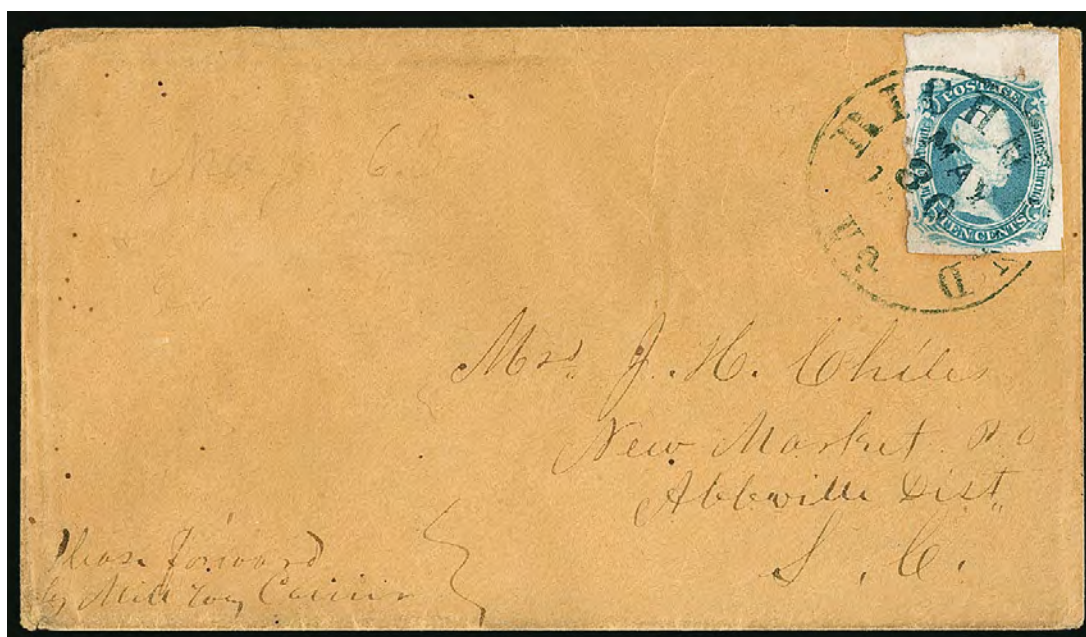 POSTAGE
TEN CENTS
RICHMOND
MAY
30
63
Mrs. J. H. Chiles
New Market P.O
Abbeville Dist.
S. C.
Please forward
by Mill Way Carrier